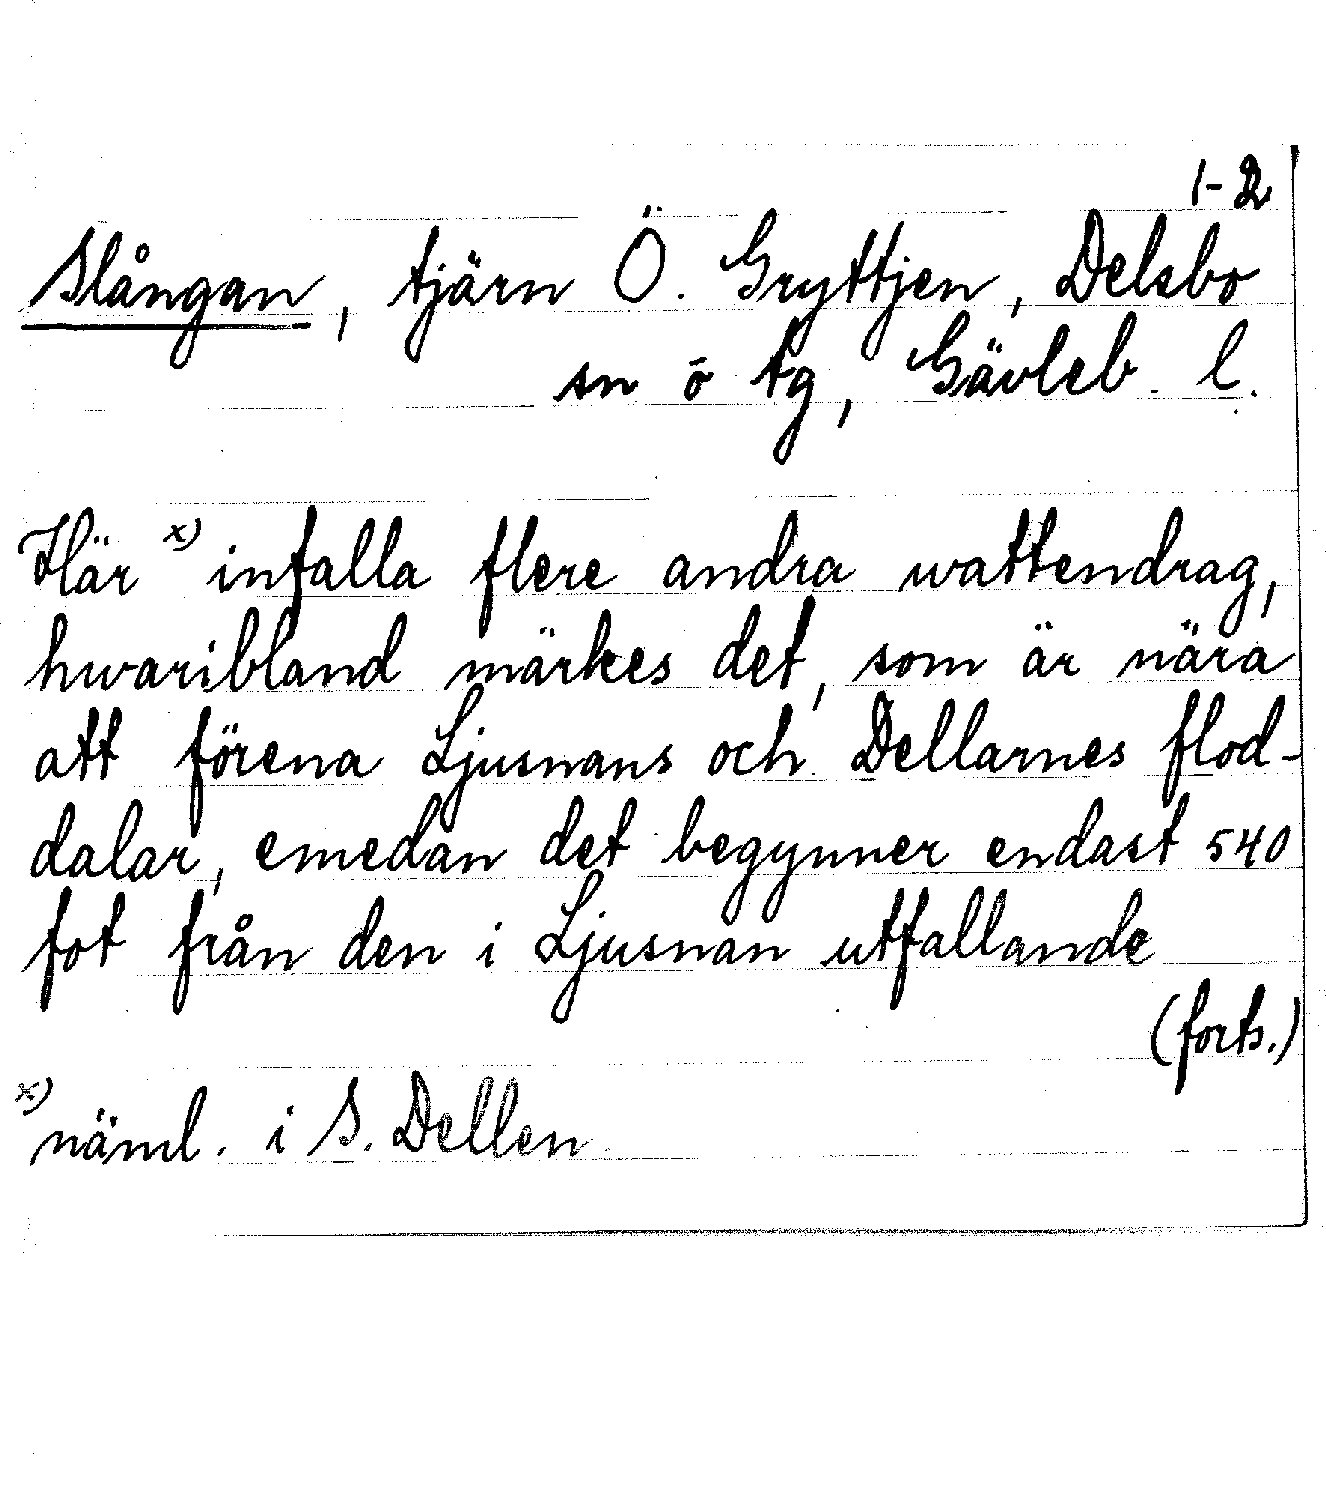 1-2
Slångan, tjärn Ö. Gryttjen, Delsbo
sn o tg, Gävleb. l.
Här x) infalla flere andra wattendrag,
hwaribland märkes det, som är nära
att förena Ljusnans och Dellarnes flod-
dalar, emedan det begynner endast 540
fot från den i Ljusnan utfallande
(forts.)
x) näml. i S. Dellen